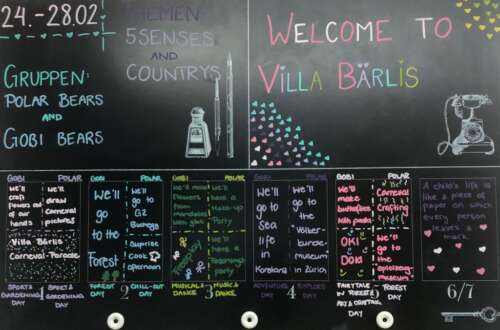 24.-28.02
THEMEN:
5 SENSES
AND
COUNTRYS
GRUPPEN:
POLAR BEARS
AND
GOBI BEARS
WELCOME TO
VILLA BÄRLIS
GOBI POLAR
We'll
craft
flowers out
of our
hands
we'll
draw
Carneval
pictures
Villa Bärlis
Carneval-Parade
SPORTS &
GARDENING
DAY
1
SPORT &
GARDENING
DAY
GOBI POLAR
We'll
go
to the
Forest
We'll
go to
GZ
Surprise
Cook
afternoon
FOREST
DAY
2
CHILL-OUT
DAY
GOBI POLAR
We'll make
Flowers
from
Mandalas
Freeplay
We'll
have a
Make-up
Party
We'll
have a
Party
MUSICAL &
DANCE
3
MUSIC &
DANCE
GOBI POLAR
We'll
go to
Sea
life
in
Konstanz
We'll
go to
the
Völker-
kunde-
museum
in Zürich
ADVENTURE
DAY
4
EXPLORE
DAY
GOBI POLAR
We'll
make
butterflies
Carneval
Crafting
OKI
DOKI
We'll
go to
the
FAIRYTALE
IN FOREST/
DAY
5
FOREST
DAY
A child's life is
like a piece of
paper on which
every person
leaves a
mark.
6/7